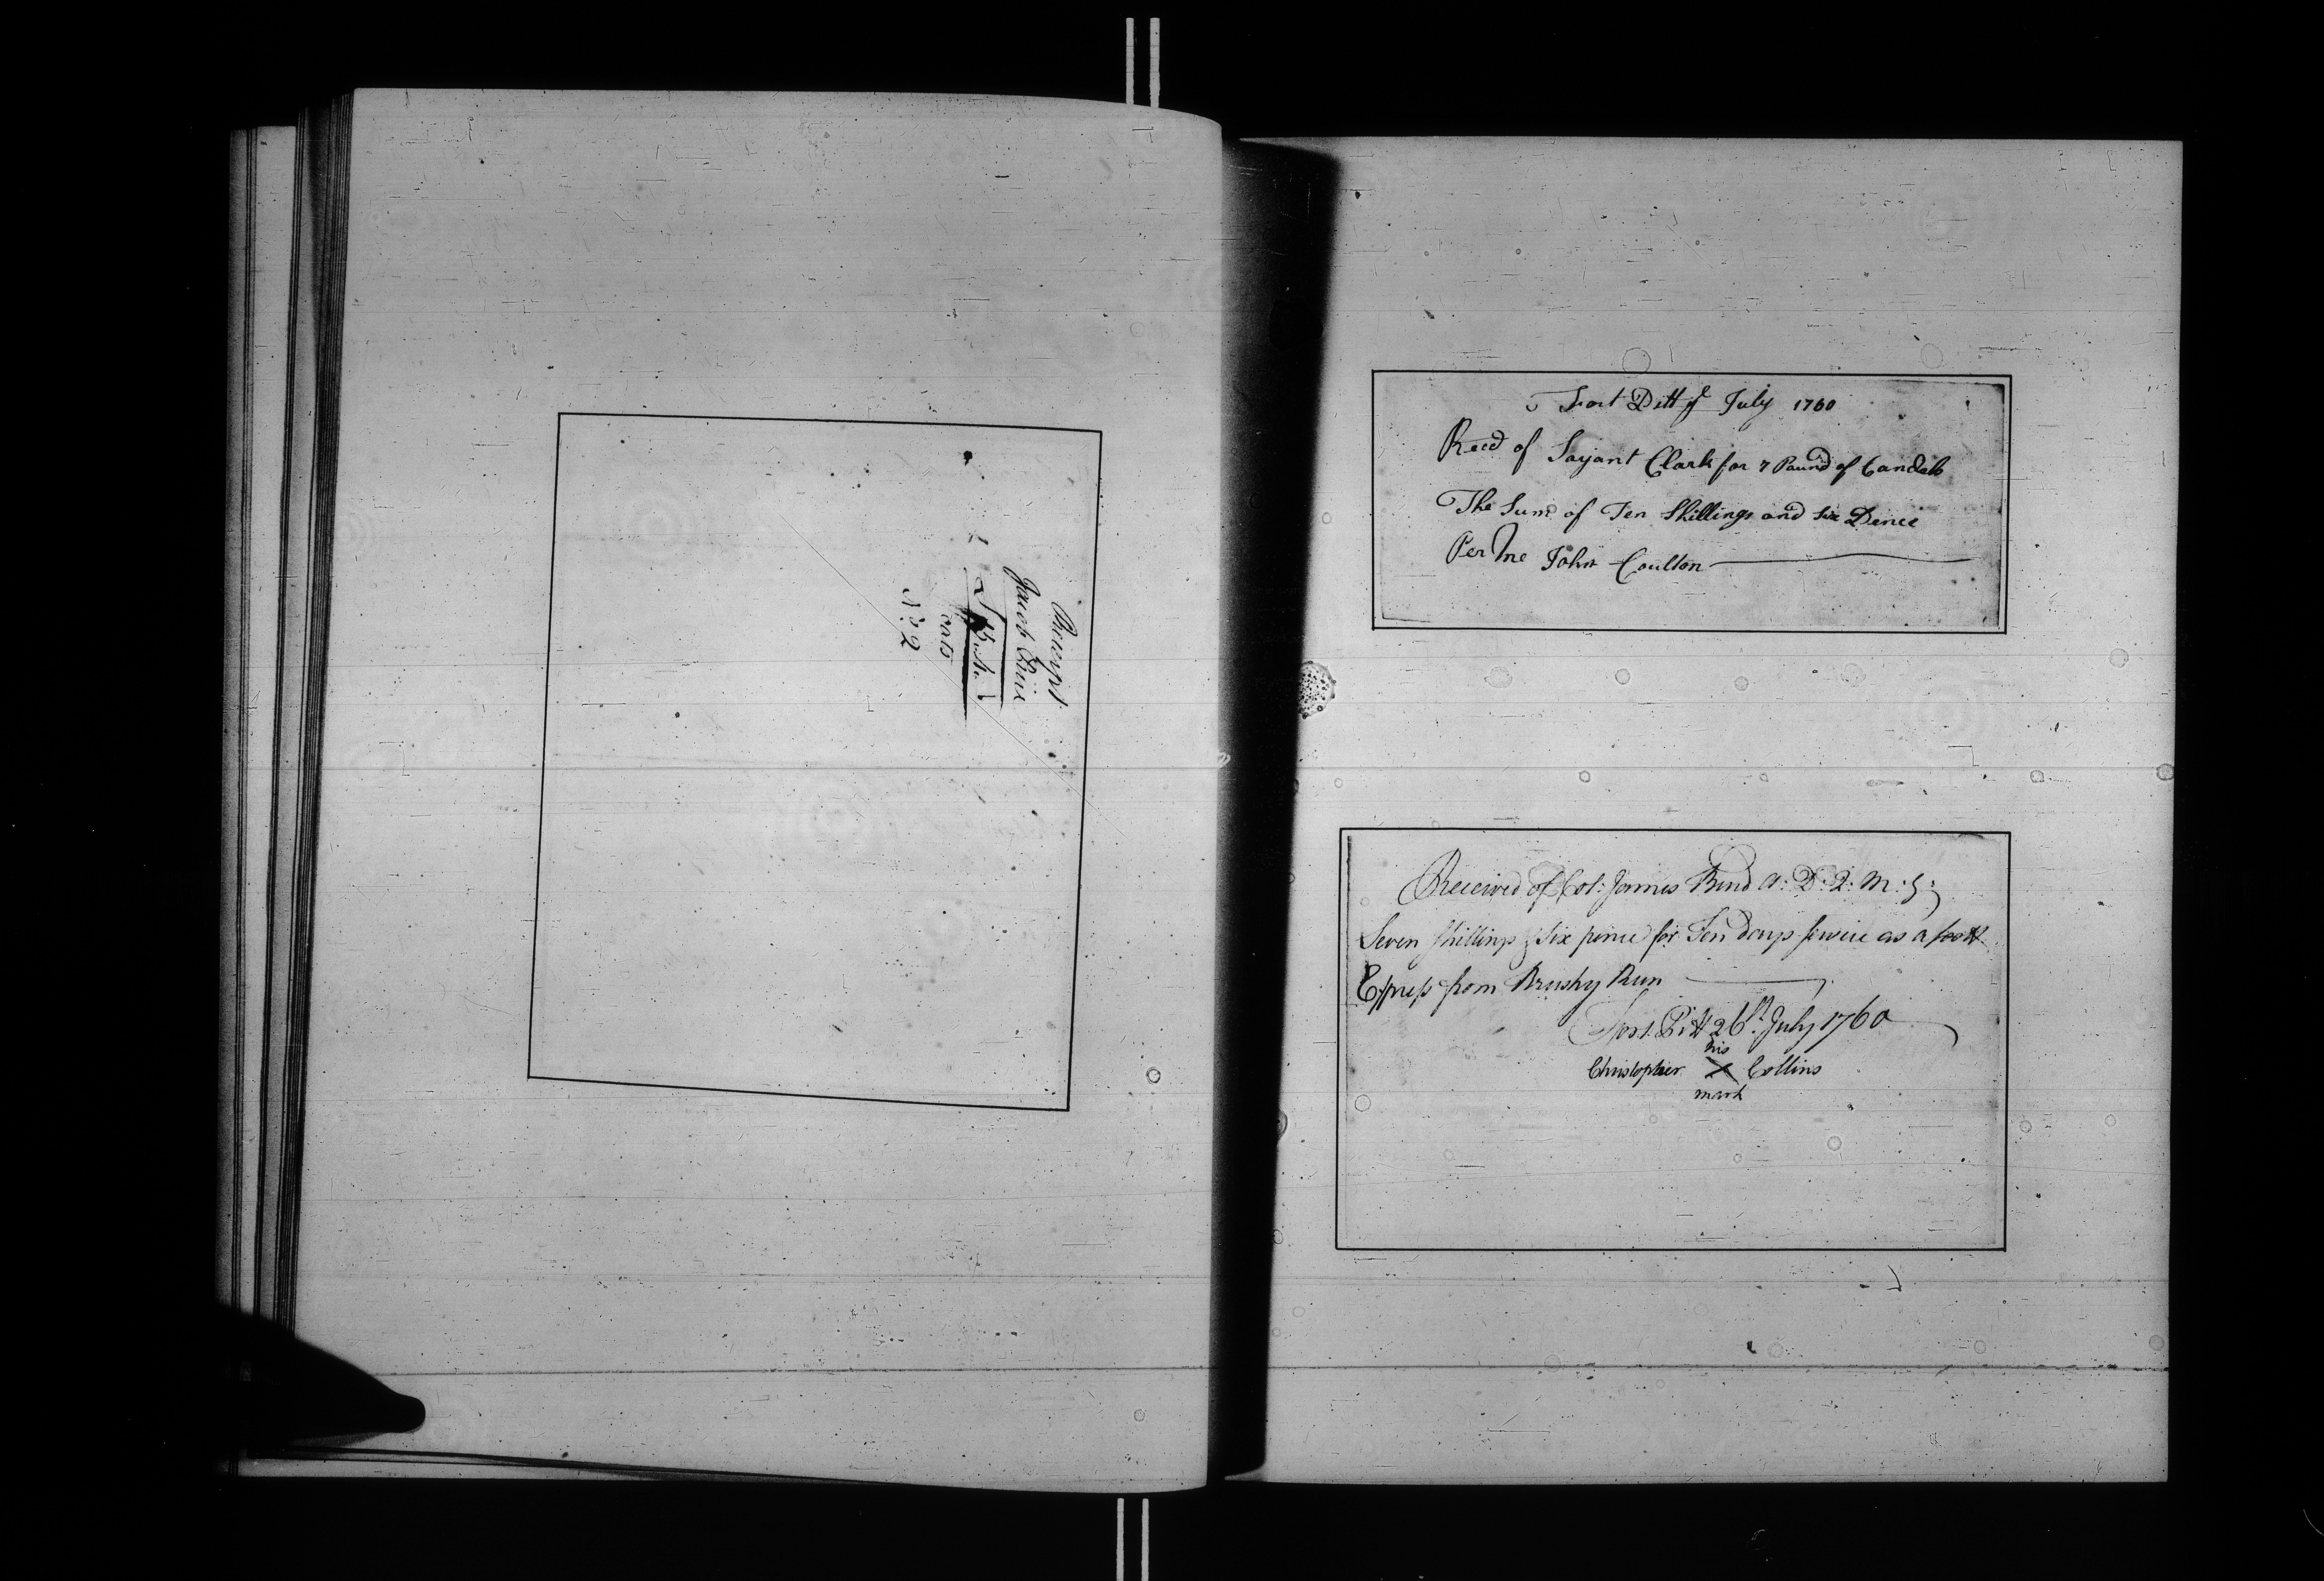 Receipt
Jacob Rine
Bush.
oats
No: 2
Fort Ditt ye July 1760
Recd of Sarjant Clark for 7 Pound of Candels
The Sum of Ten Shillings and Six Dence
Per Me John Coulton
Received of Col: James Burd A: D: Q: M: G:
Seven shillings & Six pence for Ten days service as a foott
Express from Brushy Run
Fort Pitt 26th July 1760
his
Christopher X Collins
mark